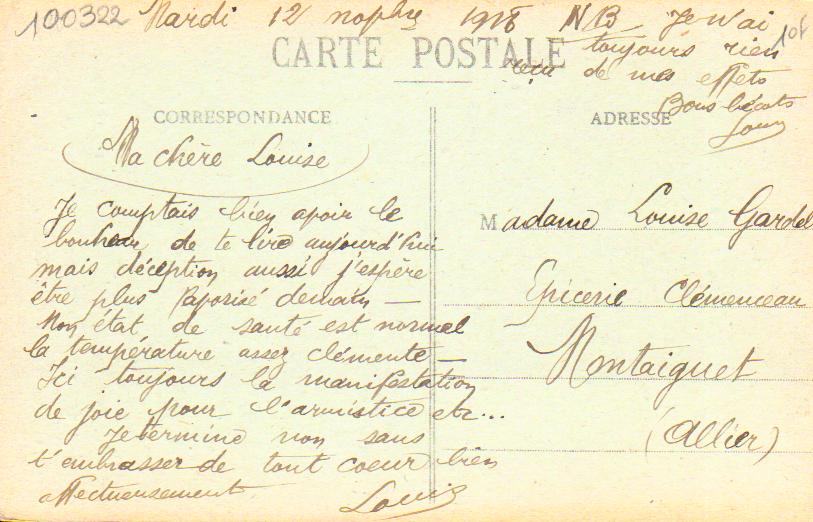 100322 Mardi 12 novbre 1918 NB Je n'ai
toujours rien
reçu de mes effets
Bons bécots
Louis
10f
CARTE POSTALE
CORRESPONDANCE
ADRESSE
Ma chère Louise
Je comptais bien avoir le
bonheur de te lire aujourd'hui
mais déception aussi j'espère
être plus favorisé demain —
Mon état de santé est normal
la température assez clémente —
Ici toujours la manifestation
de joie pour l'armistice etc...
Je termine non sans
t'embrasser de tout coeur bien
affectueusement Louis
Madame Louise Gardel
Epicerie Clémenceau
Montaiguet
(Allier)